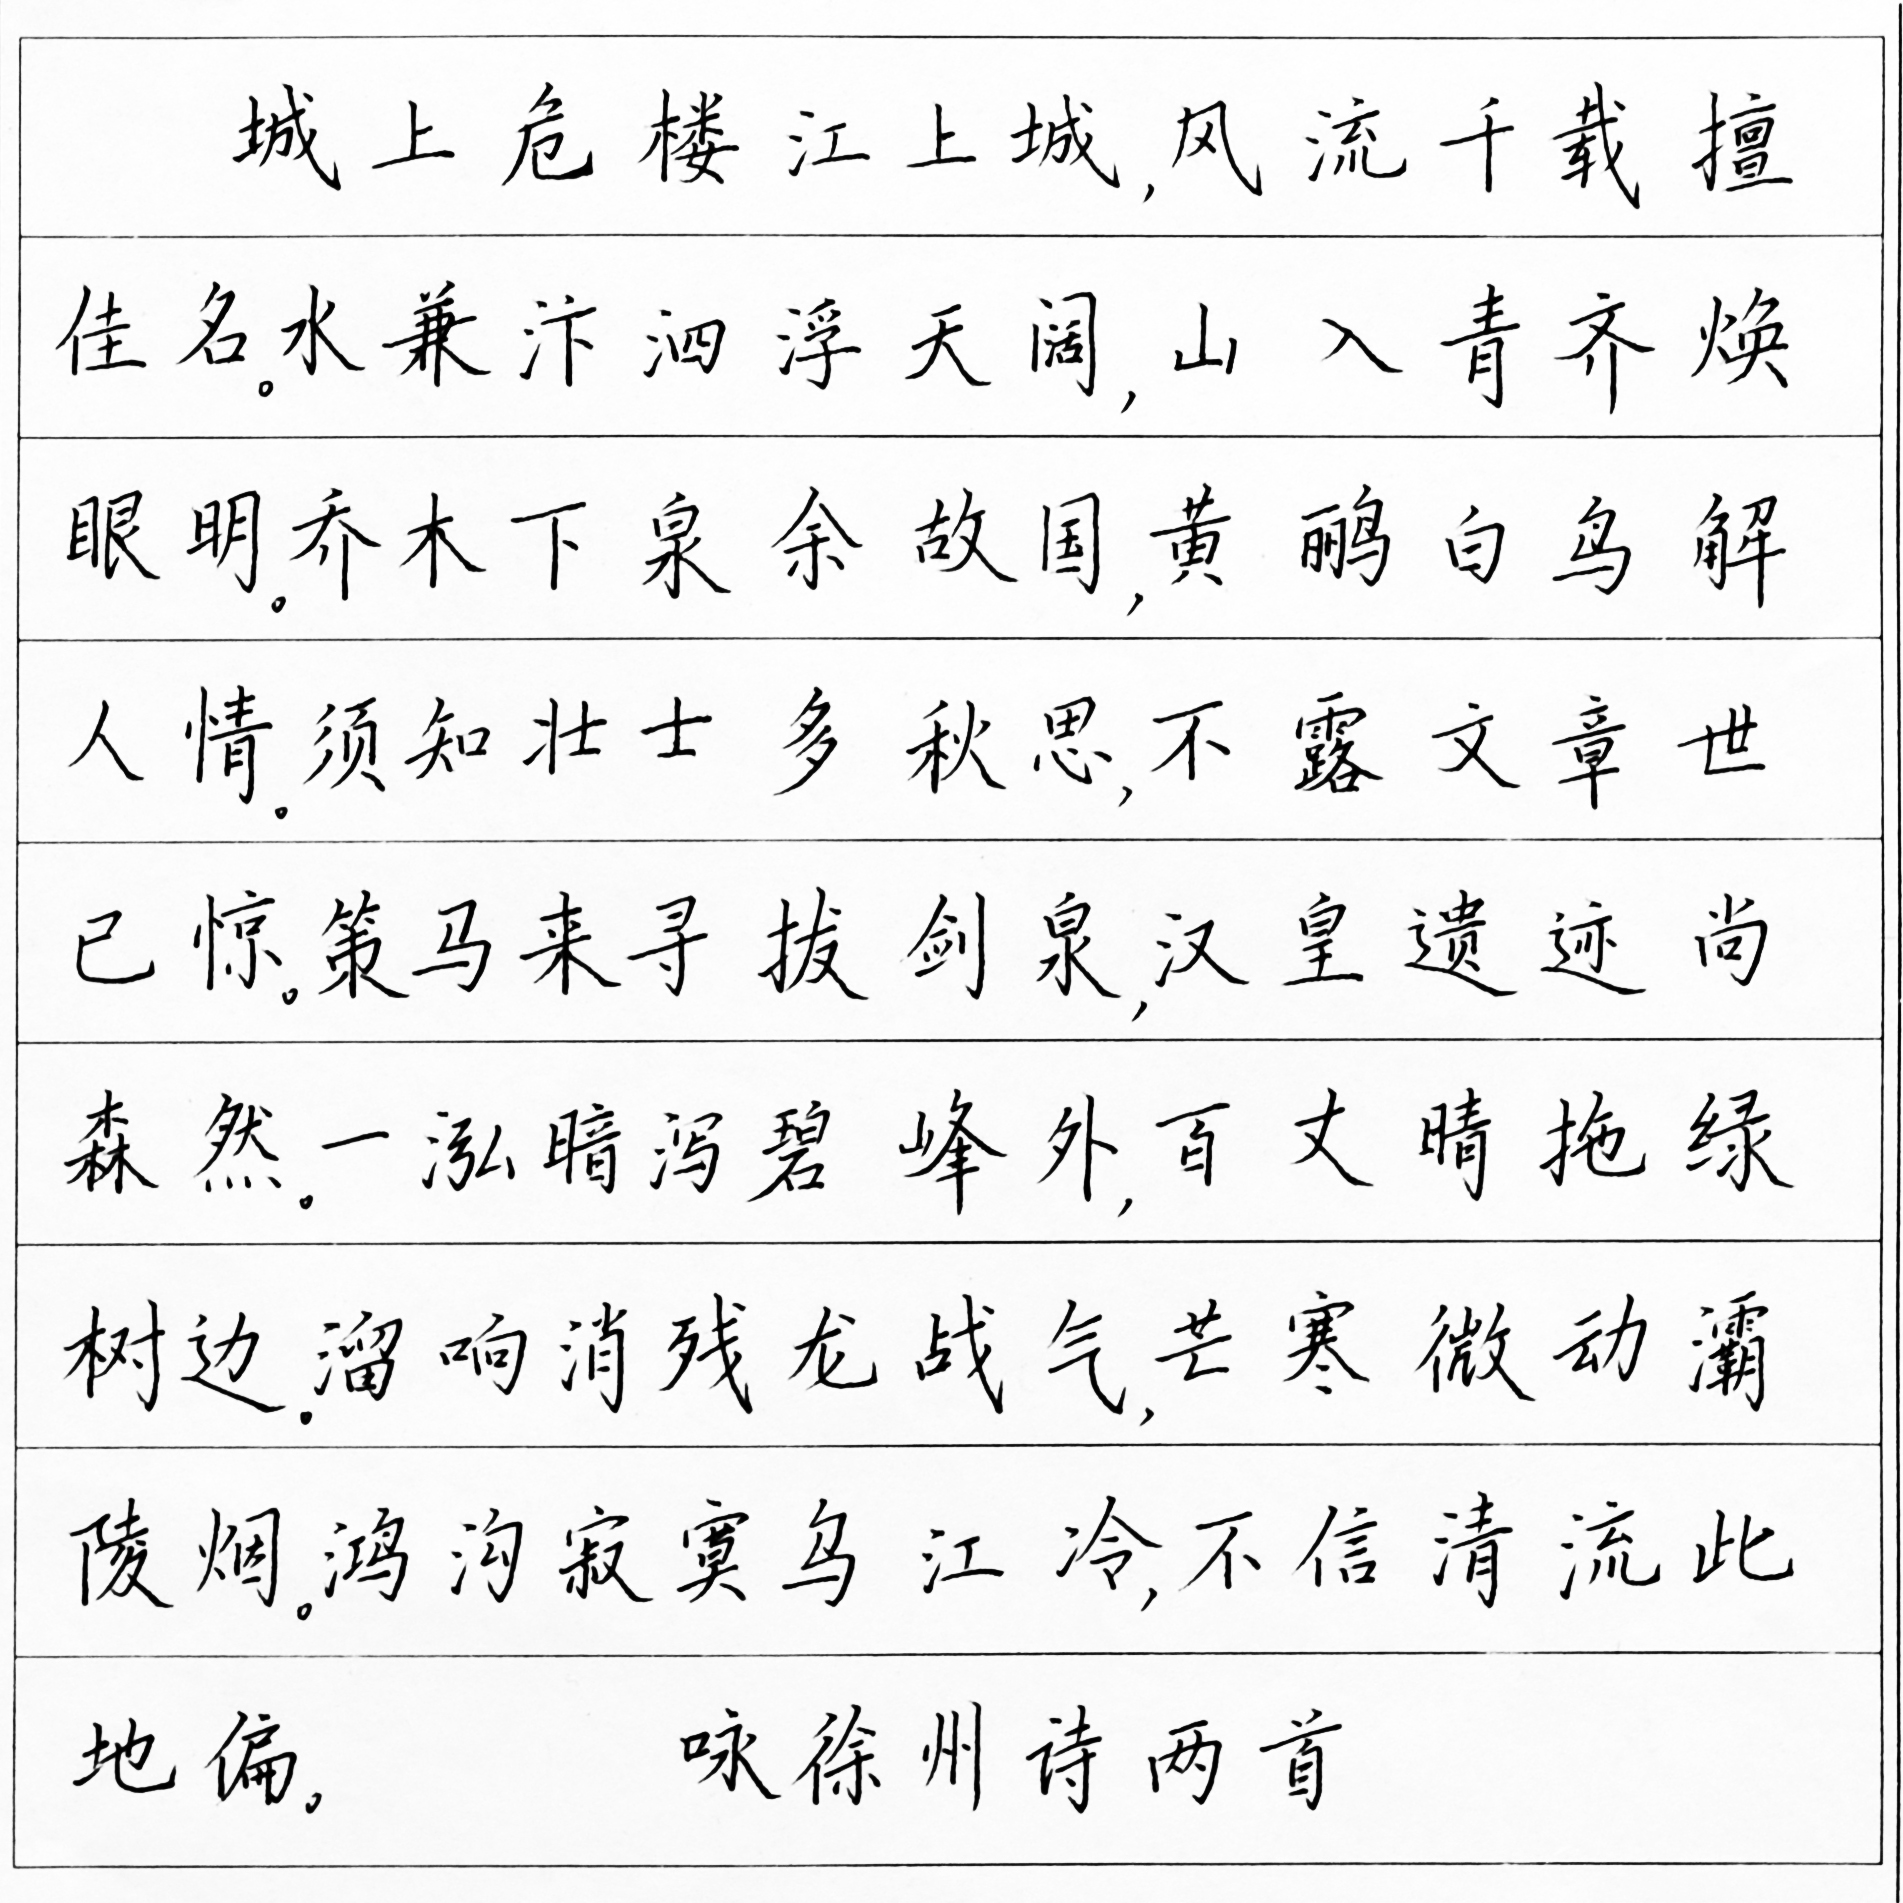 城上危楼江上城,风流千载擅
佳名。水兼汴泗浮天阔,山入青齐焕
眼明。乔木下泉余故国,黄鹂白鸟解
人情。须知壮士多秋思,不露文章世
已惊。策马来寻拔剑泉,汉皇遗迹尚
森然。一泓暗泻碧峰外,百丈晴拖绿
树边。溜响消残龙战气,芒寒微动灞
陵烟。鸿沟寂寞乌江冷,不信清流此
地偏。 咏徐州诗两首